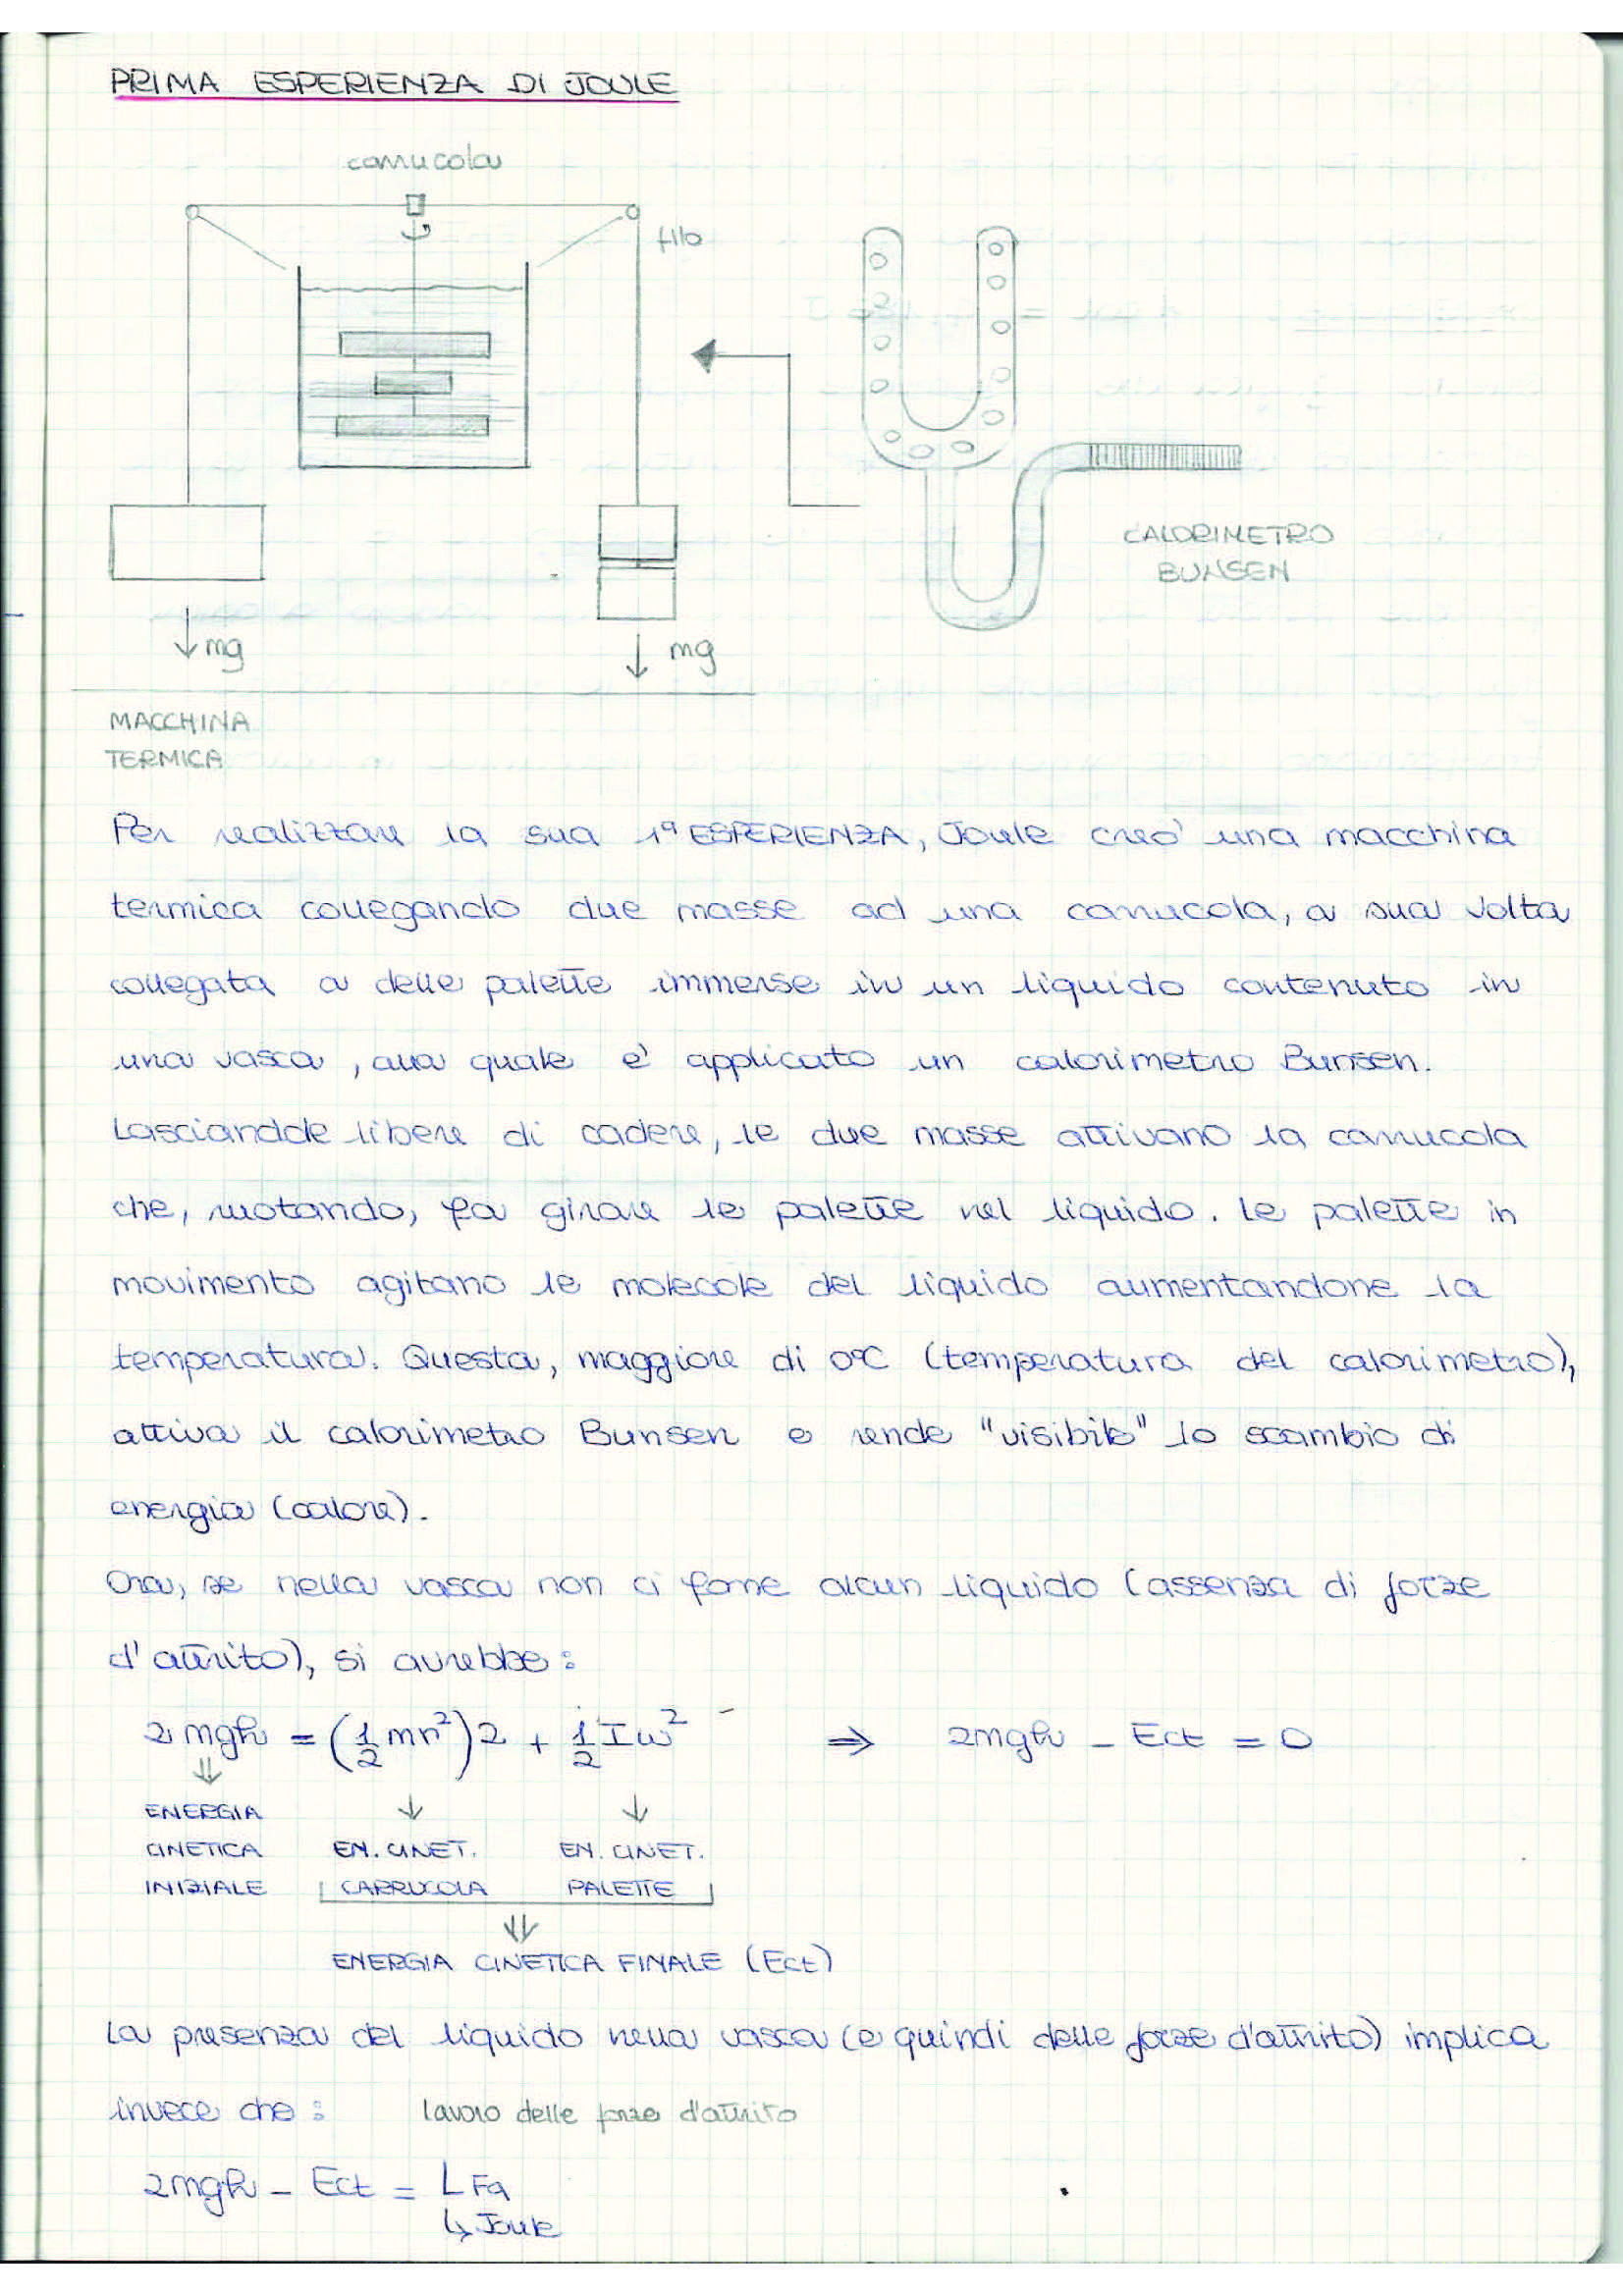 PRIMA ESPERIENZA DI JOULE
carrucola
filo
CALORIMETRO
BUNSEN
mg
mg
MACCHINA
TERMICA
Per realizzare la sua 1ª ESPERIENZA, Joule creò una macchina
termica collegando due masse ad una carrucola, a sua volta
collegata a delle palette immerse in un liquido contenuto in
una vasca, alla quale è applicato un calorimetro Bunsen.
Lasciandole libere di cadere, le due masse attivano la carrucola
che, ruotando, fa girare le palette nel liquido. Le palette in
movimento agitano le molecole del liquido aumentandone la
temperatura. Questa, maggiore di 0°C (temperatura del calorimetro),
attiva il calorimetro Bunsen e rende "visibile" lo scambio di
energia (calore).
Ora, se nella vasca non ci fosse alcun liquido (assenza di forze
d'attrito), si avrebbe:
2mgh = (1/2 mv²)2 + 1/2 Iω² ⇒ 2mgh - Ect = 0
ENERGIA
CINETICA EN. CINET. EN. CINET.
INIZIALE CARRUCOLA PALETTE
ENERGIA CINETICA FINALE (Ect)
La presenza del liquido nella vasca (e quindi delle forze d'attrito) implica
invece che: lavoro delle forze d'attrito
2mgh - Ect = LFa
↳ Joule